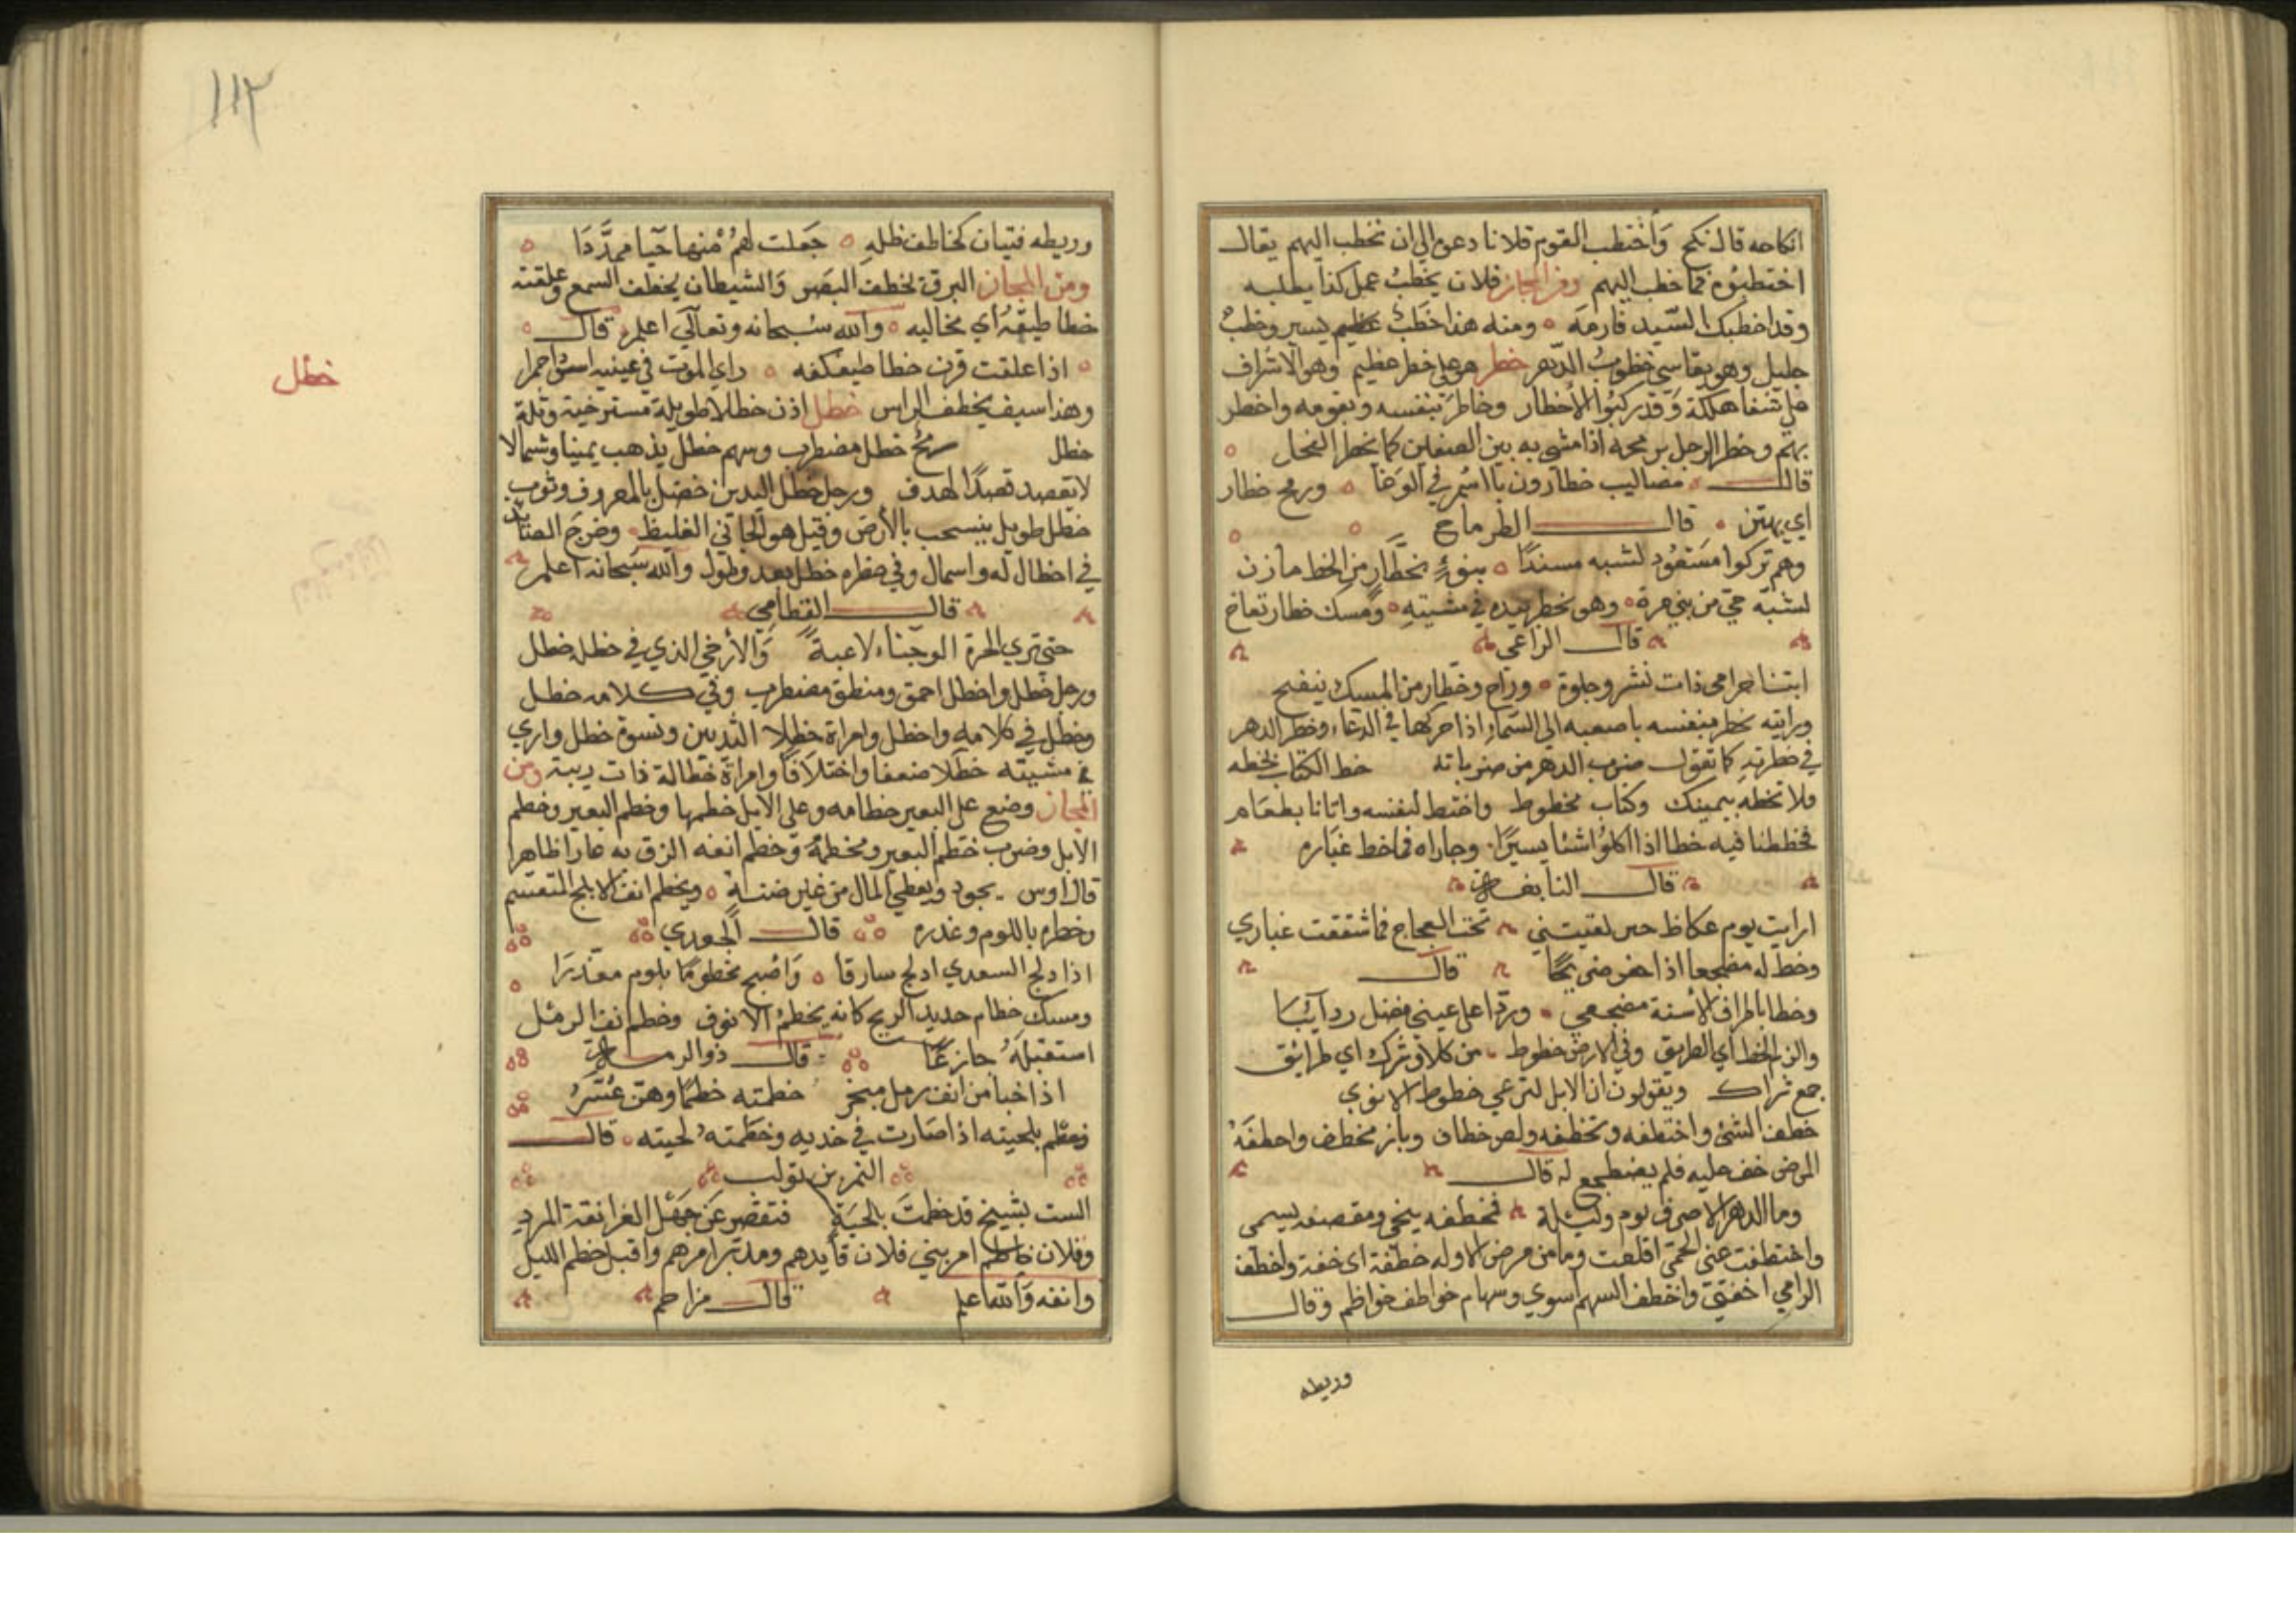 انكاحه قال نكح وَاختطب القوم فلانا دعوه الي ان يخطب اليهم يقال
اختطبوه فما خطب اليهم ومن المجاز فلان يخطبُ عمل كذا يطلبه
وقد اخطبك السّيد فارمه ومنه هذا خطبٌ عظيم يسير وخطبٌ
جليل وهو يقاسي خطوبُ الدّهر خطر هو علي خطر عظيم وهو الاشراف
علي شفا هلكة وَقد ركبُوا الأخطار وخاطَر بنفسه وبقومه واخطر
بهم وخطر الرجل برمحه اذا مشي به بين الصفين كما يخطر الفحل
قال مصاليب خطارون بالسُمر في الوَغا ورمح خطار
اي يهتز قال الطرماح
وهم تركوا مسعُود لشبه مسندًا بنوءٍ بخطّارٍ من الخط مازن
لشبّه حي من بني مرة وهو يخطر بيده في مشيتِهِ ومسك خطار نفاح
قال الراعي
اتنا خزامى ذات نشر وحلوة وراح وخطّار من المسك ينفح
ورايته يخطر بنفسه باصبعه الي السّماء اذا حركها في الدعاء وخطر الدهر
في خطرتِهِ كما تقول ضرب الدهر من ضرباته خط الكتاب يخطه
ولا تخطه بيمينك وكتاب مخطوط واختط لنفسه واتانا بطعَام
فخططنا فيه خطا اذا اكلوُا شئا يسيرًا وجاراه فما خط غبَاره
قال النابغه
ارايت يوم عكاظ حين لقيتني تحت العجاج فما شققت غباري
وخط له مضجعا اذا حفر ضريحًا قال
وخطا باطراف الأسنة مضجعي وردّا علي عيني فضل ردائيا
والزم الخط اي الطريق وفي الارض خطوط من كلاء وشرك اي طرائق
جمع شراك ويقولون ان الابل لترعي خطوط الانوي
خطف الشئ واختطفه وتخطفه ولص خطاف وباز مخطف واخطفَهُ
المرض خف عليه فلم يضطجع له قال
وما الدهر الا صرف يوم وليلة فمخطفه ينحي ومقصفه يسمى
واختطفت عني الحمّى اقلعت وما من مرض الا وله خطفة اي خفة واخطف
الرامي اخفق واخطف السهم اسوي وسهام خواطف خواظم وقال
وريطه
١١٢
وريطه فتيان كخاطف ظله جَعلت لهمُ مْنها خبا ممدَّدَا
ومن المجاز البرق يخطف البَصَر وَالشيطان يخطف السمع وعلقته
خطاطيفُهُ اي مخاليبه والله سُبحانه وتعالَي اعلم قال
اذا علقت قرن خطاطيف كفه راي الموت في عينيه اسود احمرا
وهذا سيف يخطف الراس خطل اذن خطلا طويلة مسترخية وثلة
خطل
خطل رمح خطل مضطرب وسهم خطل يذهب يمينا وشمالا
لا يقصد قصدًا لهدف ورجل خطل اليدين خضل بالمعروف وثوب
خطل طويل ينسحب بالأرض وقيل هو الجافي الغليظ وخرج الصّائد
في اخطال له واسمال وفي خطره خطل بعد وطول والله سُبحانه اعلم
قال القطامي
حتي تري الحرة الوجناء لاعبة وَالأرخي الذي في خطله خطل
ورجل خطل واخطل احمق ومنطق مضطرب وفي كلامه خطل
وخطل في كلامه واخطل وامراة خطلا الثديين ونسوة خطل واري
في مشيته خطلا ضعفا واختلافا وامراة خطالة ذات ريبة ومن
المجاز وضع علي البعير خطامه وعلي الابل خطمها وخطم البعير وخطم
الابل وضرب خطم البعير ومخطمهُ وَخطم انفه الزق به عارا ظاهرا
قال اوس يجود ويعطي المال من غير ضنة ويخطم انف الابلج المتغشم
وخطره باللوم وغدره قال الجعدي
اذا دلج السعدي ادلج سارقا وَاصْبح مخطومًا بلوم معذرَا
ومسك خطام حديد الريح كانه يخطمُ الانوف وخطم انف الرمل
استقبلَهُ جازعًا قال ذو الرمه
اذا خبا من انف رمل منخر خطمته خطمًا وهن عُسَّرُ
وخطم بلحيته اذا صَارت في خديه وخطَمته لحيته قال
النمر بن تولب
الست بشيخ قد خطمتَ بلحيَةٍ فتقصر عَن جَهْل الغرانقة المردِ
وفلان خاطم امر بني فلان قائدهم ومدبّر امرهم واقبل خطم الليل
وانفه وَالله اعلم قال مزاحم